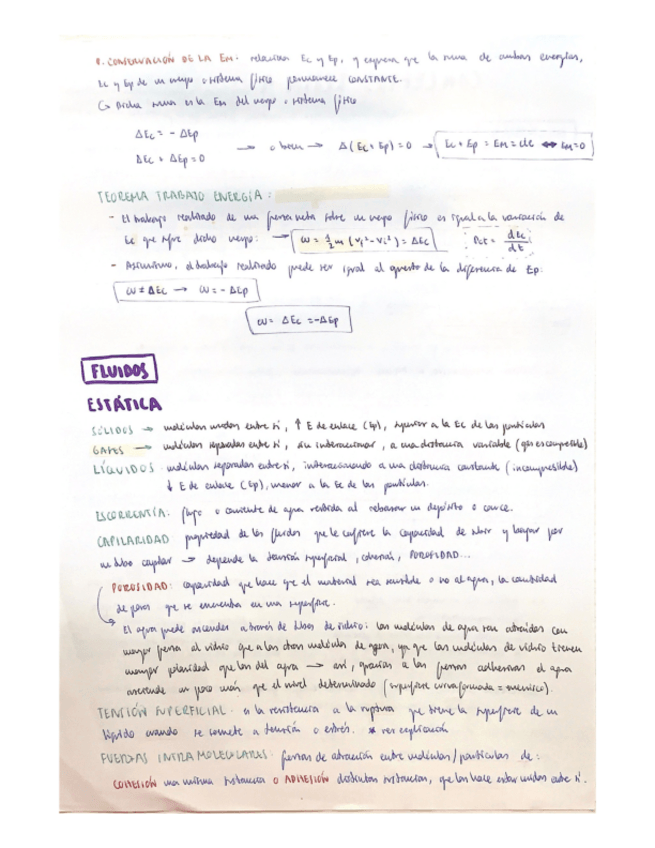 P. CONSERVACIÓN DE LA EM: relaciona Ec y Ep, y expresa que la suma de ambas energías,
Ec y Ep de un cuerpo o sistema físico permanece CONSTANTE.
↳ Dicha suma es la Em del cuerpo o sistema físico
ΔEc = - ΔEp
ΔEc + ΔEp = 0
→ o bien → Δ(Ec+Ep) = 0 → Ec + Ep = EM = cte ↔ EM=0
TEOREMA TRABAJO ENERGÍA:
- El trabajo realizado de una fuerza neta sobre un cuerpo físico es igual a la variación de
Ec que sufre dicho cuerpo: → W = 1/2 m (Vf² - Vi²) = ΔEc Pot = dEc/dt
- Asimismo, el trabajo realizado puede ser igual al opuesto de la diferencia de Ep:
W = ΔEc → W = - ΔEp
W = ΔEc = -ΔEp
FLUIDOS
ESTÁTICA
SÓLIDOS → moléculas unidas entre sí, ↑ E de enlace (Ep), superior a la Ec de las partículas
GASES → moléculas separadas entre sí, sin interaccionar, a una distancia variable (gas es compresible)
LÍQUIDOS: moléculas separadas entre sí, interaccionando a una distancia constante (incompresible)
↓ E de enlace (Ep), menor a la Ec de las partículas.
ESCORRENTÍA: flujo o corriente de agua vertida al rebasar un depósito o cauce.
CAPILARIDAD: propiedad de los fluidos que le confiere la capacidad de subir y bajar por
un tubo capilar → depende la tensión superficial, cohesión, POROSIDAD...
POROSIDAD: capacidad que hace que el material sea sensible o no al agua, la cantidad
de poros que se encuentra en una superficie.
El agua puede ascender a través de tubos de vidrio: las moléculas de agua son atraídas con
mayor fuerza al vidrio que a las otras moléculas de agua, ya que las moléculas de vidrio tienen
mayor polaridad que las del agua → así, gracias a las fuerzas adhesivas el agua
asciende un poco más que el nivel determinado (superficie curva formada = menisco).
TENSIÓN SUPERFICIAL: es la resistencia a la ruptura que tiene la superficie de un
líquido cuando se somete a tensión o estrés. * ver explicación
FUERZAS INTRAMOLECULARES: fuerzas de atracción entre moléculas/partículas de:
COHESIÓN una misma sustancia o ADHESIÓN distintas sustancias, que las hace estar unidas entre sí.